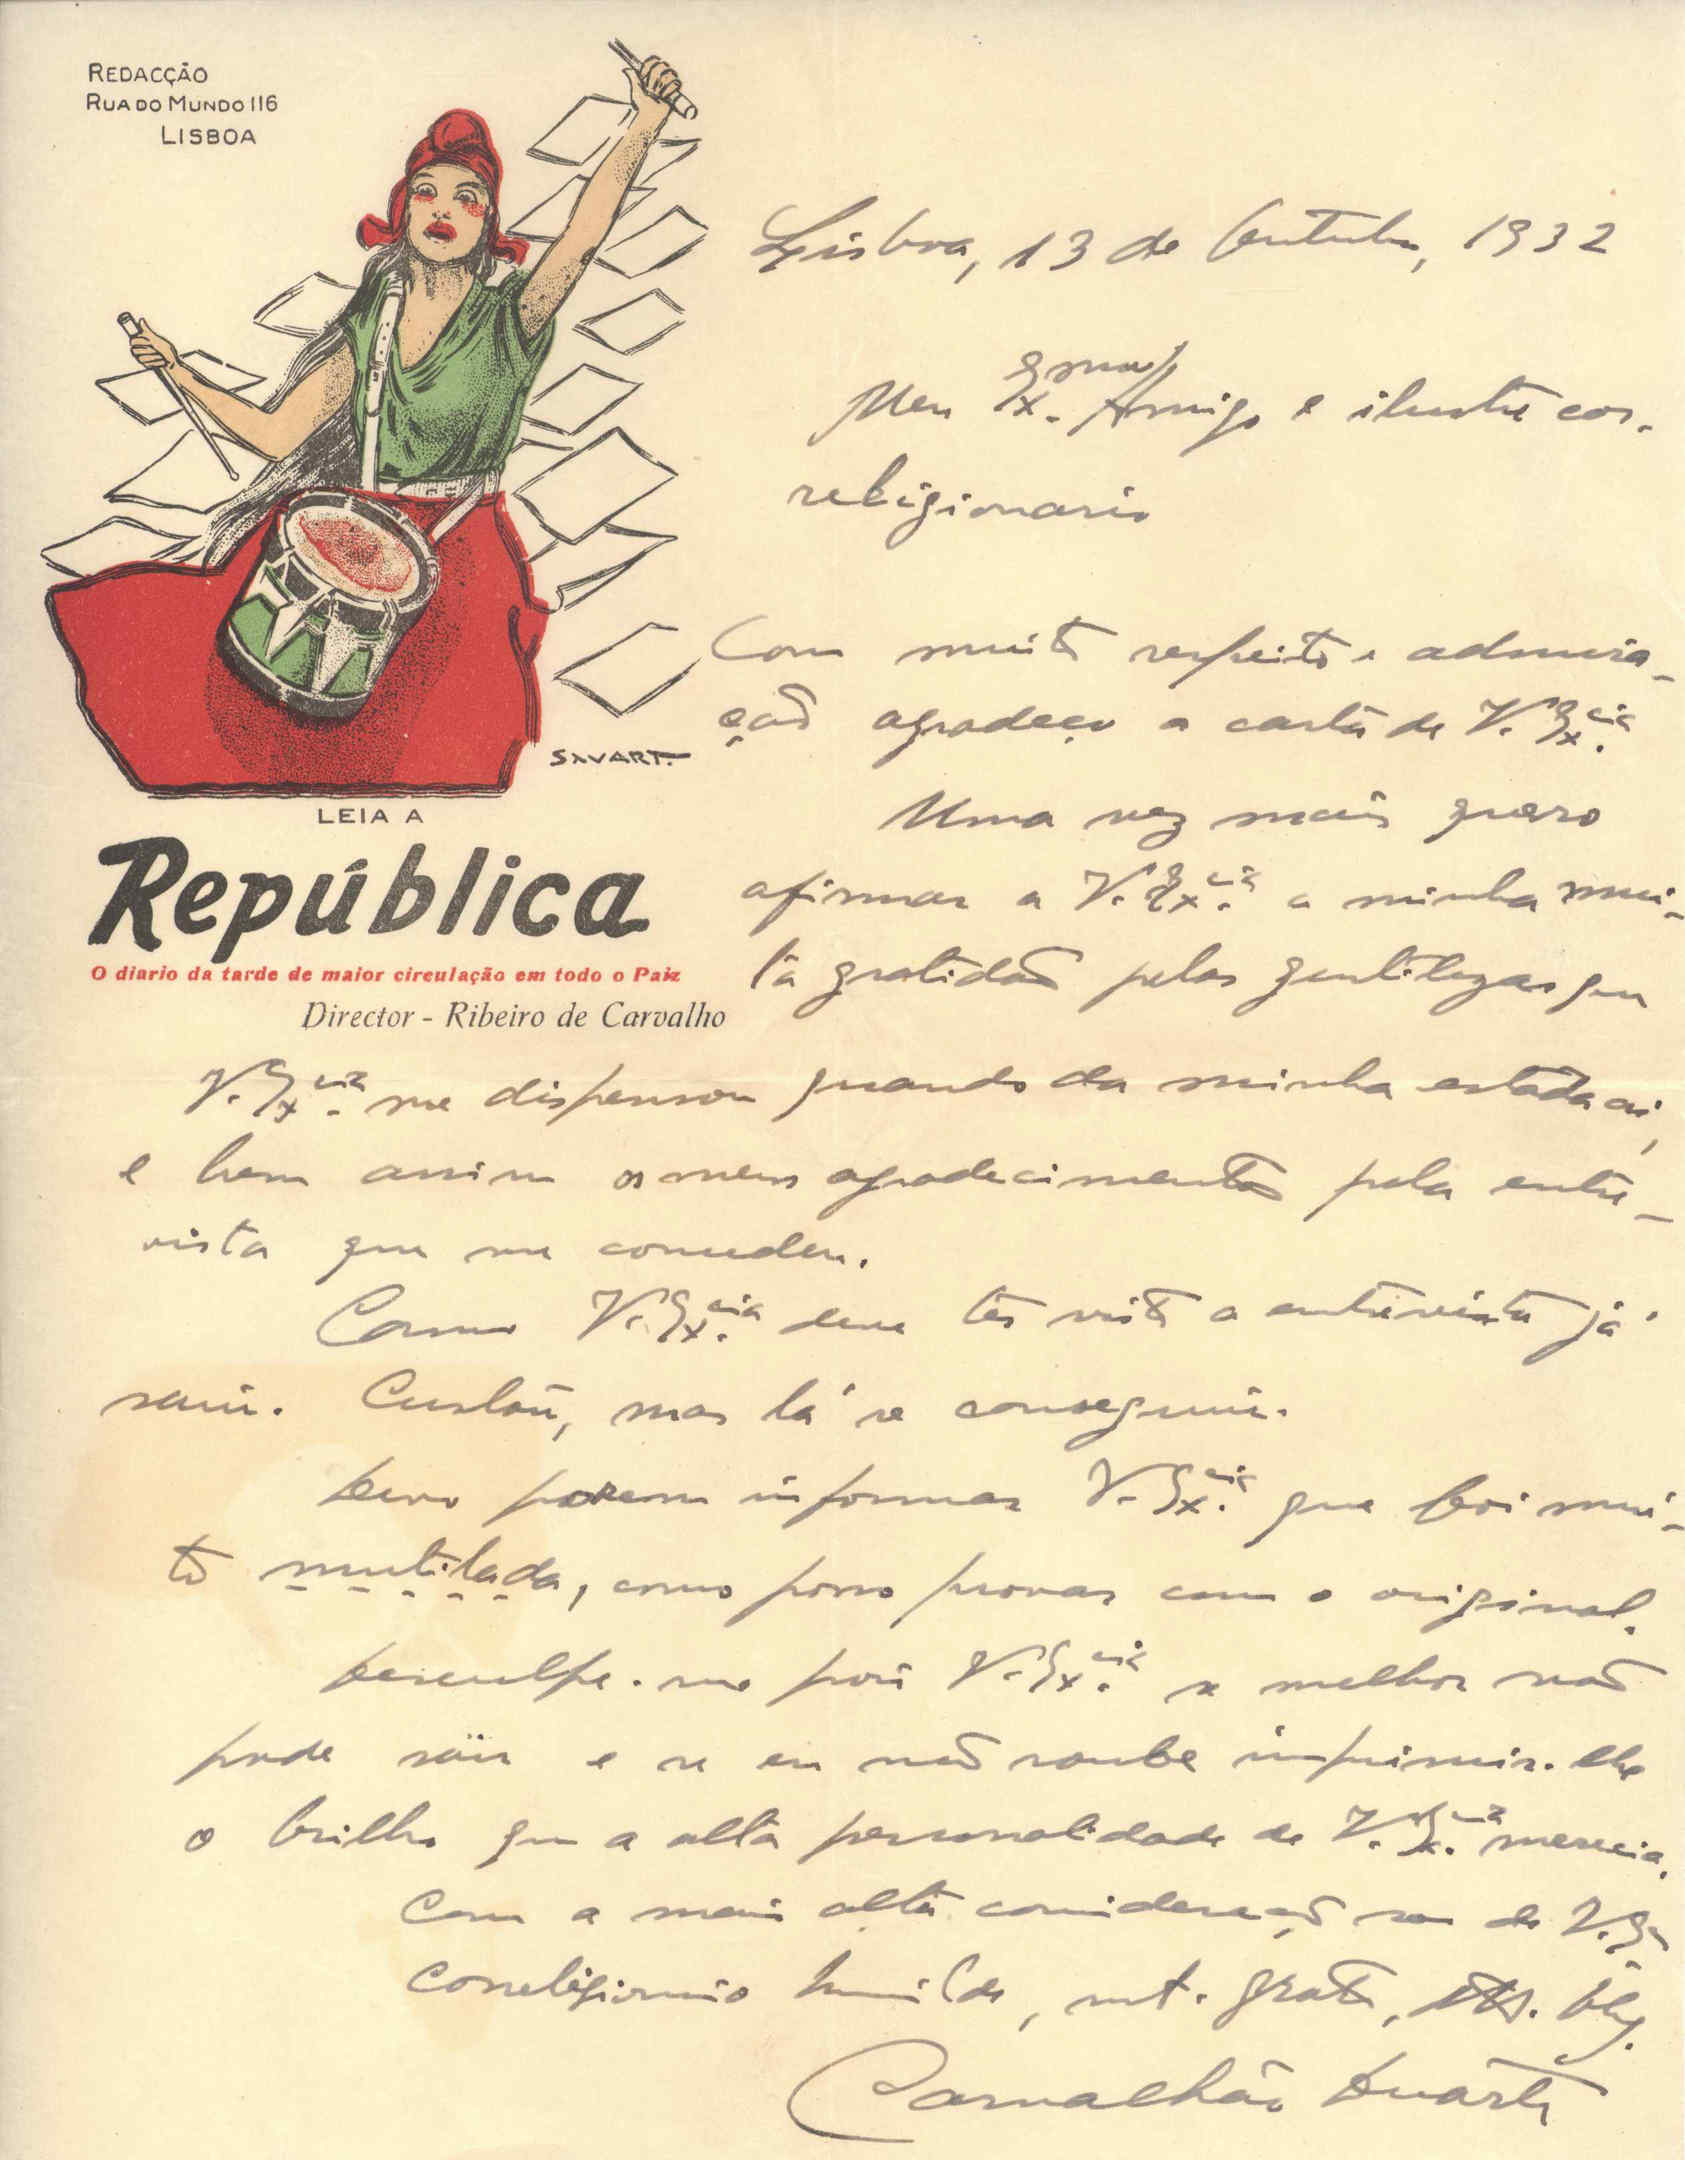 REDACÇÃO
RUA DO MUNDO 116
LISBOA
SAVART.
LEIA A
República
O diario da tarde de maior circulação em todo o Paiz
Director - Ribeiro de Carvalho
Lisboa, 13 de Outubro, 1932
Meu Ex.mo Amigo e ilustre cor-
religionario
Com muito respeito e admira-
ção agradeço a carta de V. Ex.cia
Uma vez mais quero
afirmar a V. Ex.cia a minha mui-
ta gratidão pelas gentilezas que
V. Ex.cia me dispensou quando da minha estada aí,
e bem assim os meus agradecimentos pela entre-
vista que me concedeu.
Como V. Ex.cia deve ter visto a entrevista já
saiu. Custou, mas lá se conseguiu.
Devo porem informar V. Ex.cia que foi mui-
to mutilada, como posso provar com o original.
Desculpe-me pois V. Ex.cia se melhor não
pude sair e se eu não soube imprimir-lhe
o brilho que a alta personalidade de V. Ex.cia merecia.
Com a mais alta consideração sou de V. Ex.
correligionario humilde, mt. grato, att. obg.
Carvalhão Duarte